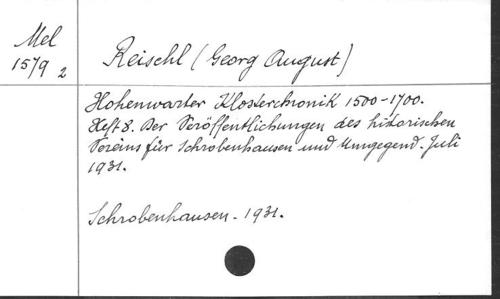 Mel
1579 2
Reischl (Georg August)
Hohenwarter Klosterchronik 1500-1700.
Heft 8. Der Veröffentlichungen des historischen
Vereins für Schrobenhausen und Umgegend. Juli
1931.
Schrobenhausen. 1931.